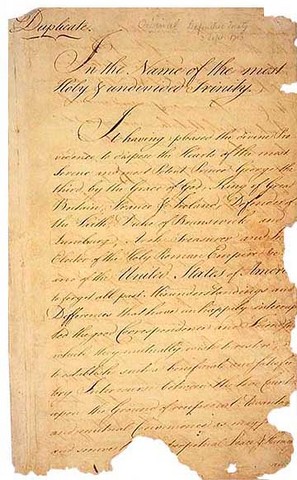 Duplicate.
Original Definitive Treaty
3 Sept. 1783
In the Name of the most
Holy & undivided Trinity.
It having pleased the divine Pro
vidence to dispose the Hearts of the most
Serene and most Potent Prince George the
third, by the Grace of God, King of Great
Britain, France & Ireland, Defender of
the Faith, Duke of Brunswick and
Lunebourg, Arch Treasurer and
Elector of the Holy Roman Empire &
and of the United States of Ameri
to forget all past Misunderstandings and
Differences that have unhappily interrup
ted the good Correspondence and Friendship
which they mutually wish to restore,
to establish such a beneficial and satisfac
tory Intercourse between the two Count
upon the Ground of reciprocal Advanta
and mutual Convenience as may
and secure perpetual Peace & Harmo